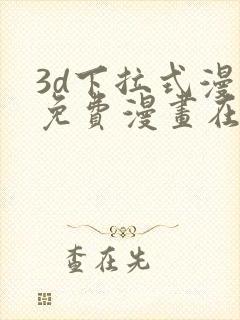 3d下拉式漫
免費漫畫在
查在先